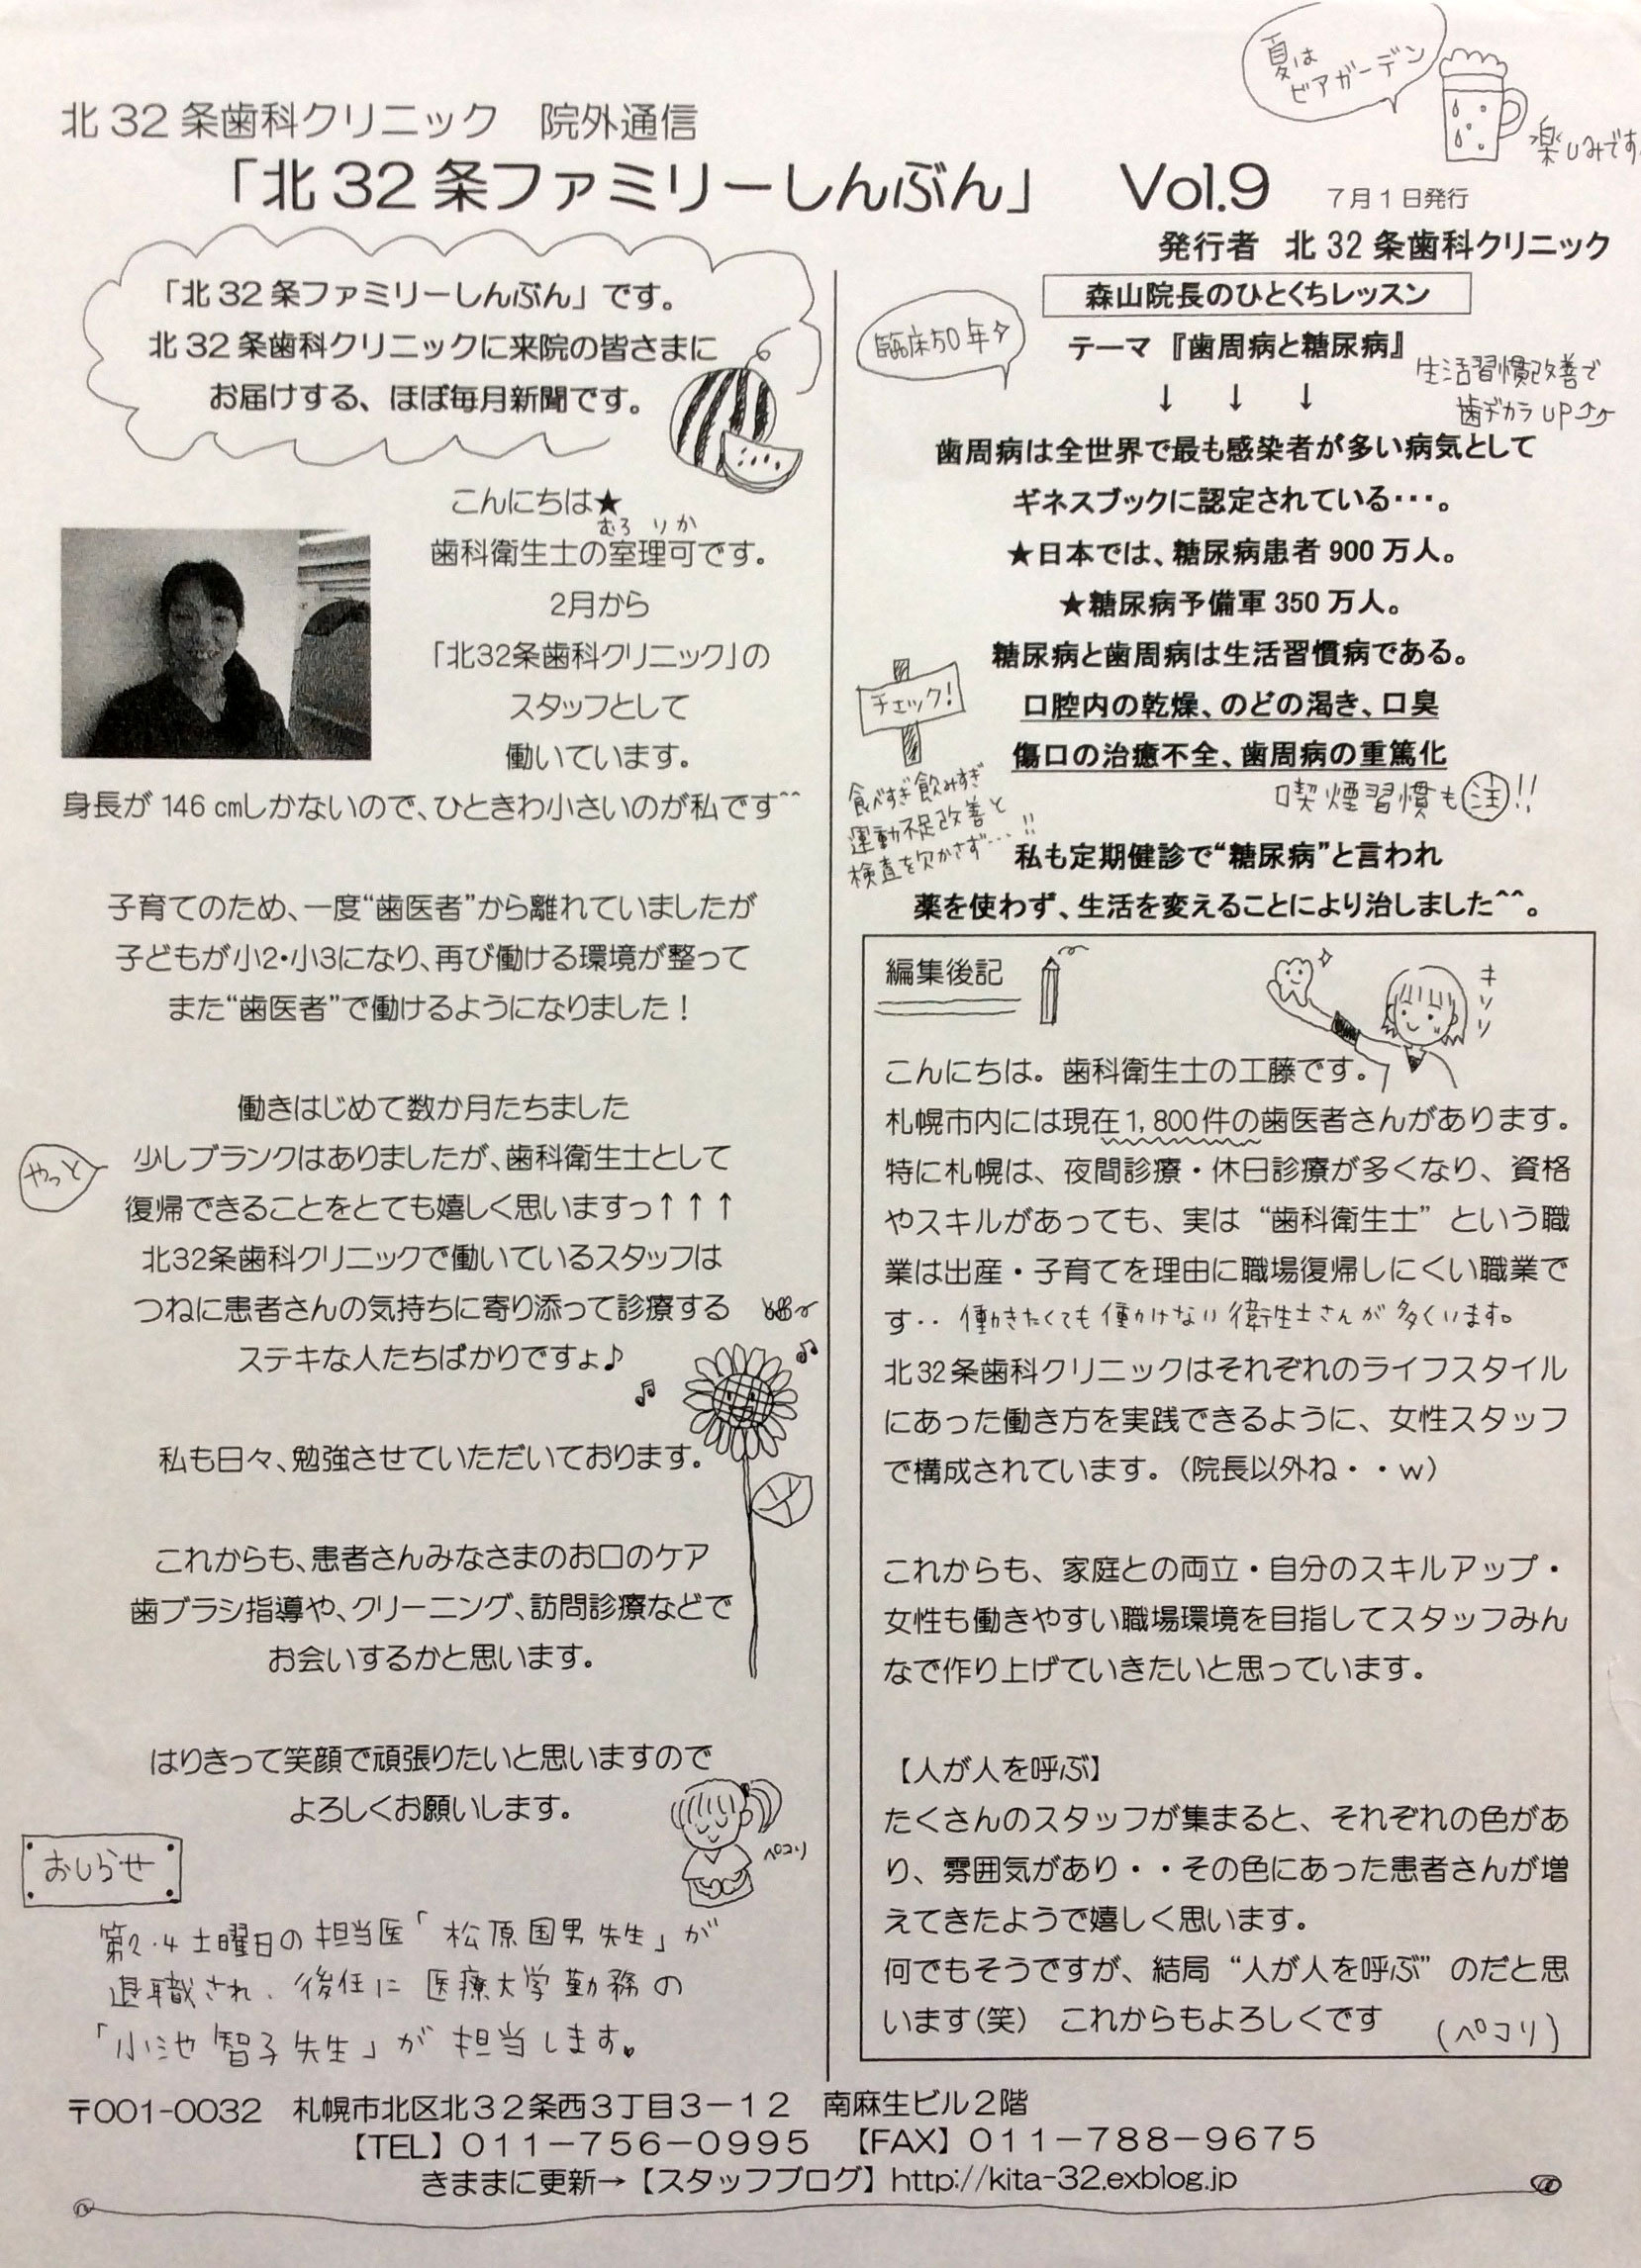 夏は
ビアガーデン
楽しみです
北32条歯科クリニック　院外通信
「北32条ファミリーしんぶん」　Vol.9　7月1日発行
発行者　北32条歯科クリニック
「北32条ファミリーしんぶん」です。
北32条歯科クリニックに来院の皆さまに
お届けする、ほぼ毎月新聞です。
こんにちは★
むろ りか
歯科衛生士の室理可です。
2月から
「北32条歯科クリニック」の
スタッフとして
働いています。
身長が146㎝しかないので、ひときわ小さいのが私です^^
子育てのため、一度“歯医者”から離れていましたが
子どもが小2・小3になり、再び働ける環境が整って
また“歯医者”で働けるようになりました！
働きはじめて数か月たちました
やっと
少しブランクはありましたが、歯科衛生士として
復帰できることをとても嬉しく思いますっ↑↑↑
北32条歯科クリニックで働いているスタッフは
つねに患者さんの気持ちに寄り添って診療する
ステキな人たちばかりですょ♪
私も日々、勉強させていただいております。
これからも、患者さんみなさまのお口のケア
歯ブラシ指導や、クリーニング、訪問診療などで
お会いするかと思います。
はりきって笑顔で頑張りたいと思いますので
よろしくお願いします。
ペコリ
おしらせ
第2・4土曜日の担当医「松原国男先生」が
退職され、後任に医療大学勤務の
「小池智子先生」が担当します。
森山院長のひとくちレッスン
臨床50年
テーマ『歯周病と糖尿病』
生活習慣改善で
歯ヂカラUP
↓　↓　↓
歯周病は全世界で最も感染者が多い病気として
ギネスブックに認定されている・・・。
★日本では、糖尿病患者900万人。
★糖尿病予備軍350万人。
糖尿病と歯周病は生活習慣病である。
チェック！
口腔内の乾燥、のどの渇き、口臭
傷口の治癒不全、歯周病の重篤化
喫煙習慣も注!!
食べすぎ飲みすぎ
運動不足改善と
検査を欠かさず…!!
私も定期健診で“糖尿病”と言われ
薬を使わず、生活を変えることにより治しました^^。
編集後記
キリリ
こんにちは。歯科衛生士の工藤です。
札幌市内には現在1,800件の歯医者さんがあります。
特に札幌は、夜間診療・休日診療が多くなり、資格
やスキルがあっても、実は“歯科衛生士”という職
業は出産・子育てを理由に職場復帰しにくい職業で
す・・働きたくても働けない衛生士さんが多くいます。
北32条歯科クリニックはそれぞれのライフスタイル
にあった働き方を実践できるように、女性スタッフ
で構成されています。（院長以外ね・・w）
これからも、家庭との両立・自分のスキルアップ・
女性も働きやすい職場環境を目指してスタッフみん
なで作り上げていきたいと思っています。
【人が人を呼ぶ】
たくさんのスタッフが集まると、それぞれの色があ
り、雰囲気があり・・その色にあった患者さんが増
えてきたようで嬉しく思います。
何でもそうですが、結局“人が人を呼ぶ”のだと思
います（笑）　これからもよろしくです　（ペコリ）
〒001-0032　札幌市北区北３２条西３丁目３－１２　南麻生ビル２階
【TEL】０１１－７５６－０９９５　【FAX】０１１－７８８－９６７５
きままに更新→【スタッフブログ】http://kita-32.exblog.jp